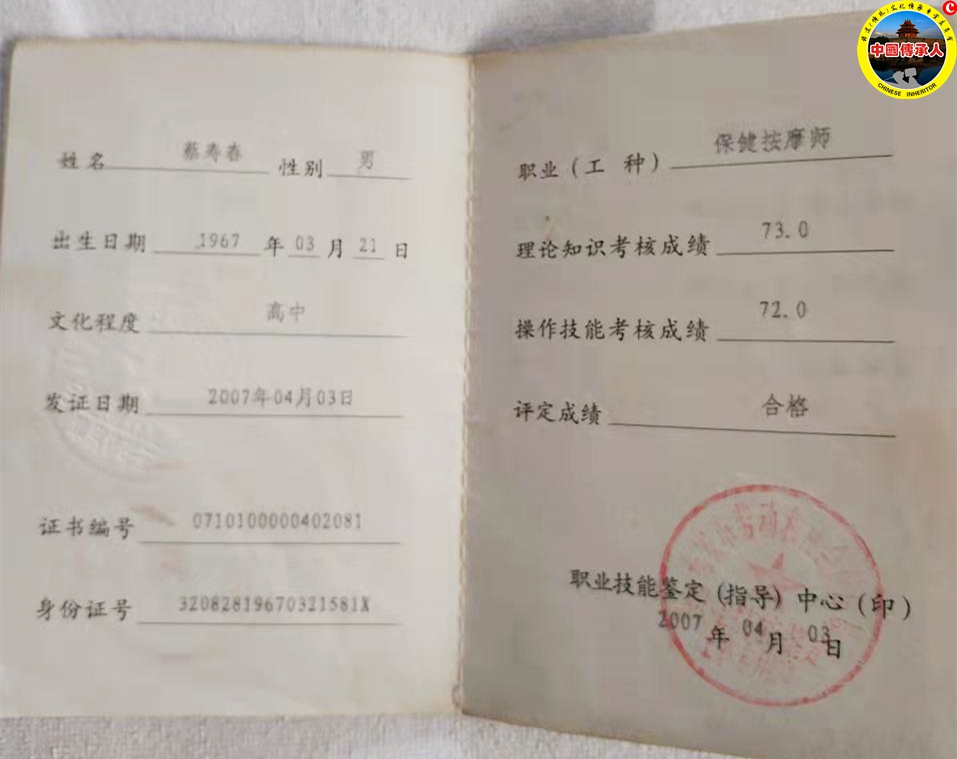 姓名 蔡寿春 性别 男
出生日期 1967 年 03 月 21 日
文化程度 高中
发证日期 2007年04月03日
证书编号 0710100000402081
身份证号 32082819670321581X
职业(工 种) 保健按摩师
理论知识考核成绩 73.0
操作技能考核成绩 72.0
评定成绩 合格
职业技能鉴定(指导)中心(印)
2007 年 04 月 03 日
中國傳承人
CHINESE INHERITOR
C